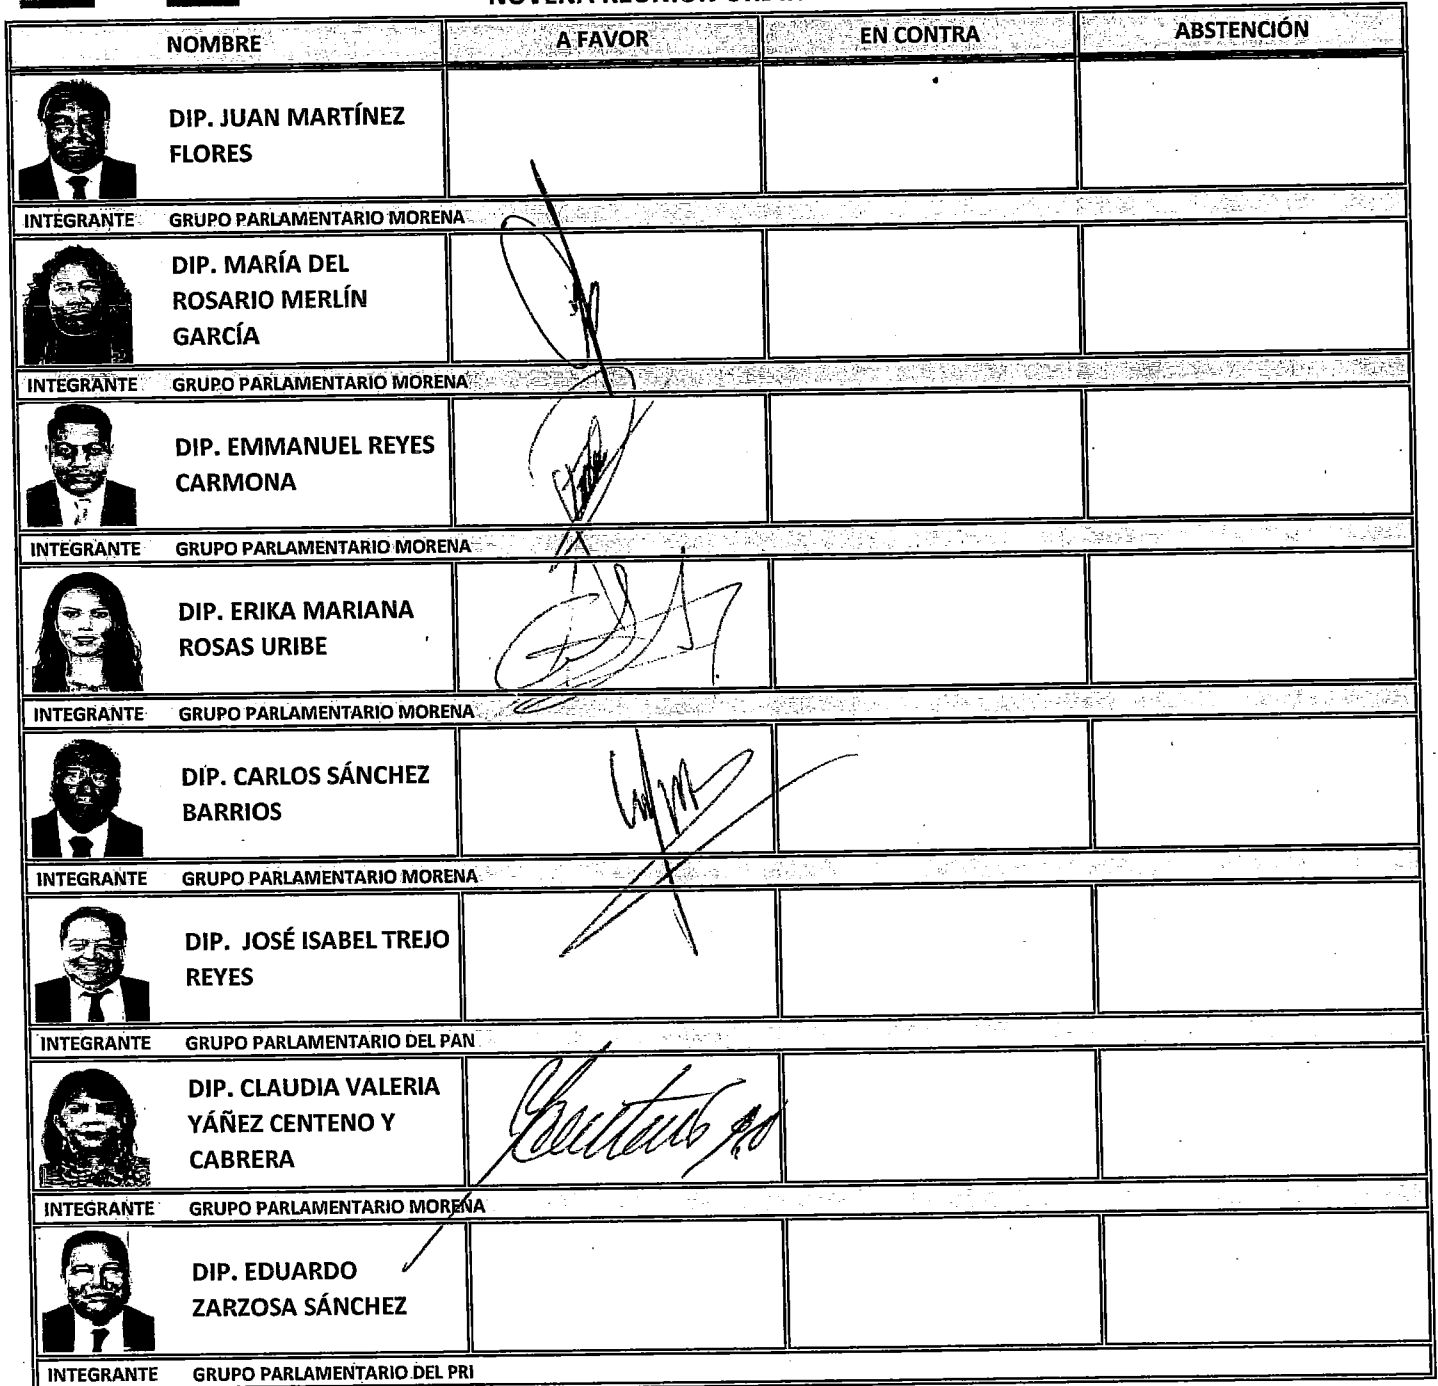 NOMBRE A FAVOR EN CONTRA ABSTENCIÓN
DIP. JUAN MARTÍNEZ
FLORES
INTEGRANTE GRUPO PARLAMENTARIO MORENA
DIP. MARÍA DEL
ROSARIO MERLÍN
GARCÍA
INTEGRANTE GRUPO PARLAMENTARIO MORENA
DIP. EMMANUEL REYES
CARMONA
INTEGRANTE GRUPO PARLAMENTARIO MORENA
DIP. ERIKA MARIANA
ROSAS URIBE
INTEGRANTE GRUPO PARLAMENTARIO MORENA
DIP. CARLOS SÁNCHEZ
BARRIOS
INTEGRANTE GRUPO PARLAMENTARIO MORENA
DIP. JOSÉ ISABEL TREJO
REYES
INTEGRANTE GRUPO PARLAMENTARIO DEL PAN
DIP. CLAUDIA VALERIA
YÁÑEZ CENTENO Y
CABRERA
INTEGRANTE GRUPO PARLAMENTARIO MORENA
DIP. EDUARDO
ZARZOSA SÁNCHEZ
INTEGRANTE GRUPO PARLAMENTARIO DEL PRI